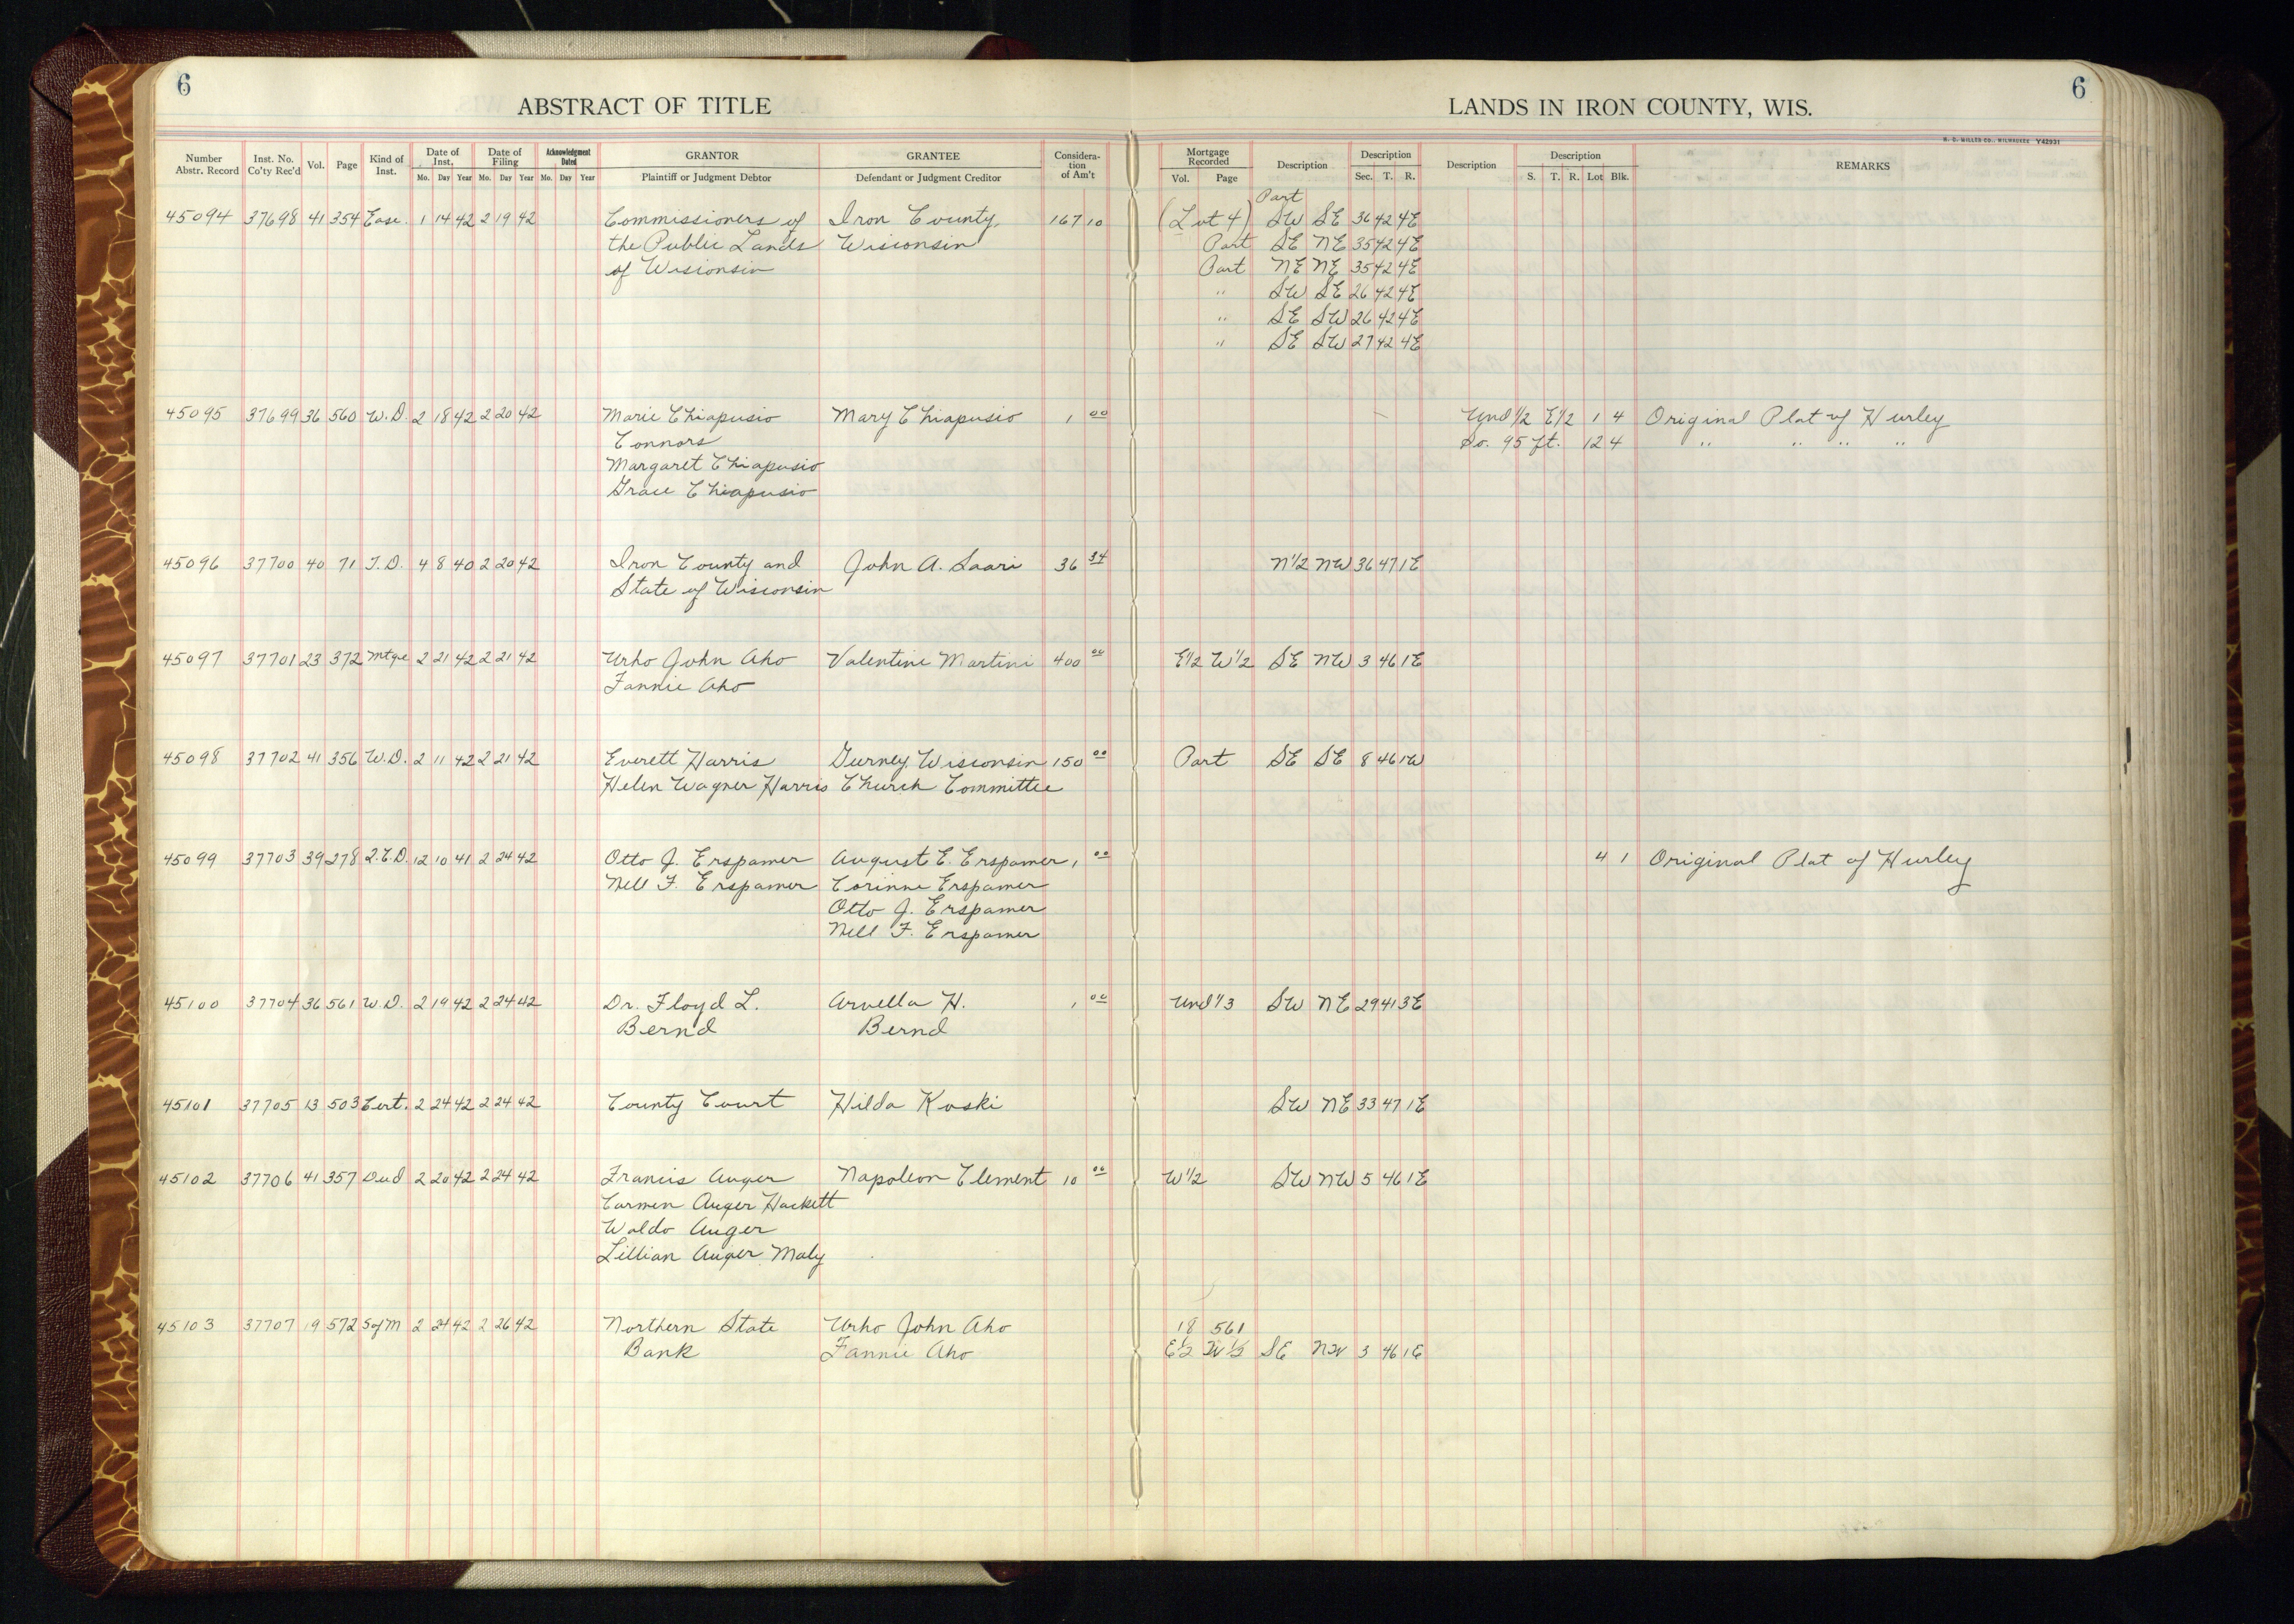 6
6
ABSTRACT OF TITLE
LANDS IN IRON COUNTY, WIS.
H. C. MILLER CO., MILWAUKEE Y42931
Number Abstr. Record Inst. No. Co'ty Rec'd Vol. Page Kind of Inst. Date of Inst. Mo. Day Year Date of Filing Mo. Day Year Acknowledgment Dated Mo. Day Year GRANTOR Plaintiff or Judgment Debtor GRANTEE Defendant or Judgment Creditor Consideration of Am't Mortgage Recorded Vol. Page Description Description Sec. T. R. Description Description S. T. R. Lot Blk. REMARKS
Part
45094 37698 41 354 Ease. 1 14 42 2 19 42 Commissioners of Iron County, 167 10 (Lot 4) SW SE 36 42 4E
the Public Lands Wisconsin Part SE NE 35 42 4E
of Wisconsin Part NE NE 35 42 4E
" SW SE 26 42 4E
" SE SW 26 42 4E
" SE SW 27 42 4E
45095 37699 36 560 W.D. 2 18 42 2 20 42 Marie Chiapusio Mary Chiapusio 1 00 Und 1/2 E1/2 1 4 Original Plat of Hurley
Connors So. 95 ft. 12 4 " " " "
Margaret Chiapusio
Grace Chiapusio
45096 37700 40 71 T.D. 4 8 40 2 20 42 Iron County and John A. Saari 36 34 N1/2 NW 36 47 1E
State of Wisconsin
45097 37701 23 372 Mtge 2 21 42 2 21 42 Urho John Aho Valentine Martini 400 00 E1/2 W1/2 SE NW 3 46 1E
Fannie Aho
45098 37702 41 356 W.D. 2 11 42 2 21 42 Everett Harris Gurney, Wisconsin 150 00 Part SE SE 8 46 1W
Helen Wagner Harris Church Committee
45099 37703 39 278 Q.C.D. 12 10 41 2 24 42 Otto J. Erspamer August E. Erspamer 1 00 4 1 Original Plat of Hurley
Nell F. Erspamer Corinne Erspamer
Otto J. Erspamer
Nell F. Erspamer
45100 37704 36 561 W.D. 2 19 42 2 24 42 Dr. Floyd L. Arvella H. 1 00 Und 1/3 SW NE 29 41 3E
Bernd Bernd
45101 37705 13 503 Cert. 2 24 42 2 24 42 County Court Hilda Koski SW NE 33 47 1E
45102 37706 41 357 Deed 2 20 42 2 24 42 Francis Auger Napoleon Clement 10 00 W1/2 SW NW 5 46 1E
Carmen Auger Hackett
Waldo Auger
Lillian Auger Maly
45103 37707 19 572 S of M 2 24 42 2 26 42 Northern State Urho John Aho 18 561
Bank Fannie Aho E1/2 W1/2 SE NW 3 46 1E